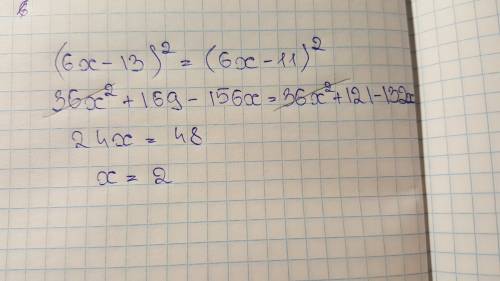 6
(6x-13)² = (6x-11)²
36x² + 169 - 156x = 36x² + 121 - 132x
24x = 48
x = 2